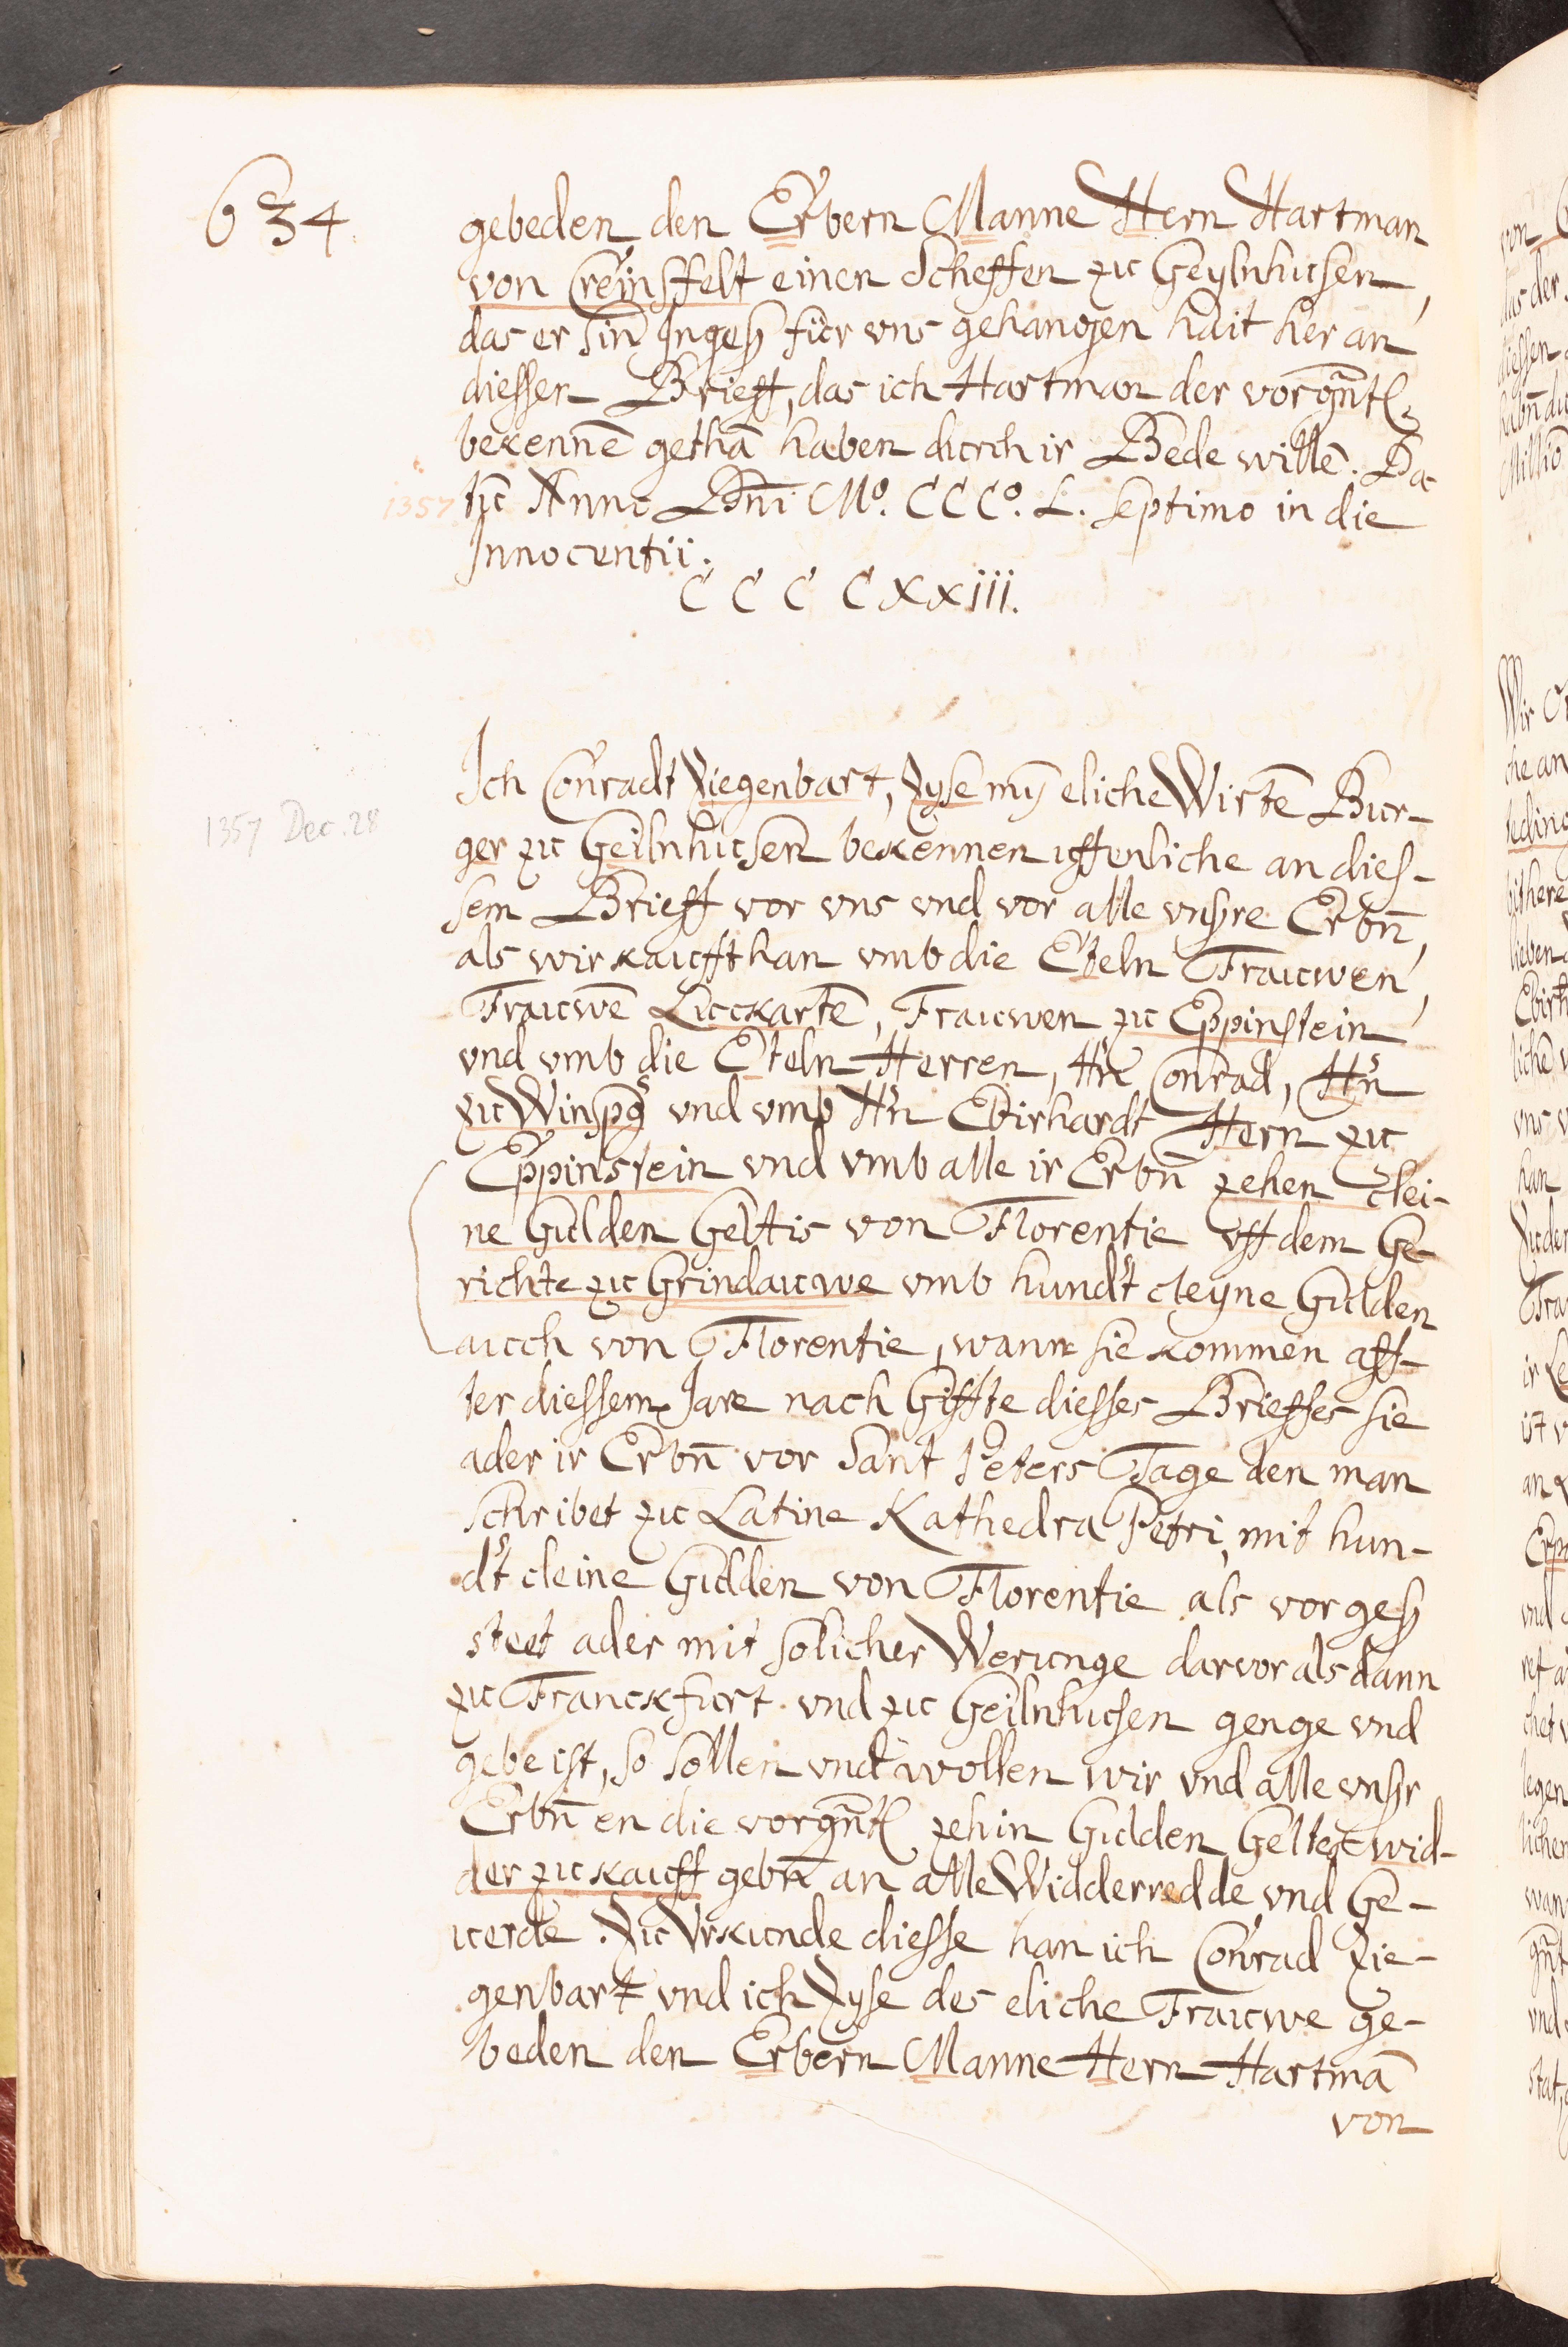 634.
gebeden den Erbern Manne Hern Hartman
von Creinsfelt einen Scheffen zu Geylnhusen,
das er sin Ingeß für uns gehangen hait her an
diesser Brieff, das ich Hartman der vorgn̄t
bekennē gethā haben durch ir Bede willē. Da-
1357 tū Anno Dn̄i Mº. CCCº. L. septimo in die
Innocentii.
C C C C xxiii.
Ich Conradt Ziegenbart, Zyse mȳ eliche Wirtē Bur-
1357 Dec. 28
ger zu Geilnhusen bekennen uffenliche an dies-
sem Brieff vor vns vnd vor alle vnsre Erbn̄,
als wir kaufft han vmb die Eteln Frauwen,
Frauwē Luckartē, Frauwen zu Eppinstein
vnd vmb die Eteln Herren, Hn̄ Conrad, Hn̄
zu Winspg vnd vmb Hn̄ Ebirhardt Hern zu
Eppinstein vnd vmb alle ir Erbn̄ zehen clei-
ne Gulden Geltis von Florentie uff dem Ge-
richte zu Grindauwe vmb hundt cleyne Gulden
auch von Florentie, wann sie kommen aff-
ter diessem Jare nach Giffte diesses Brieffes sie
ader ir Erbn̄ vor Sant Peters Tage den man
schribet zu Latine Kathedra Petri, mit hun-
dt cleine Gulden von Florentie als vorgeß
steet ader mit solicher Werunge darvor als dann
zu Franckfurt vnd zu Geilnhusen genge vnd
gebe ist, so sollen vnd wollen wir vnd alle vnsr
Erbn̄ en die vorgn̄t zehin Gulden Geltes wid-
der zu kauff gebn̄ an alle Widderredde vnd Ge-
uerde. Zu Vrkunde diesse han ich Conrad Zie-
genbart vnd ich Zyse des eliche Frauwe ge-
beden den Erbern Manne Hern Hartmā
von